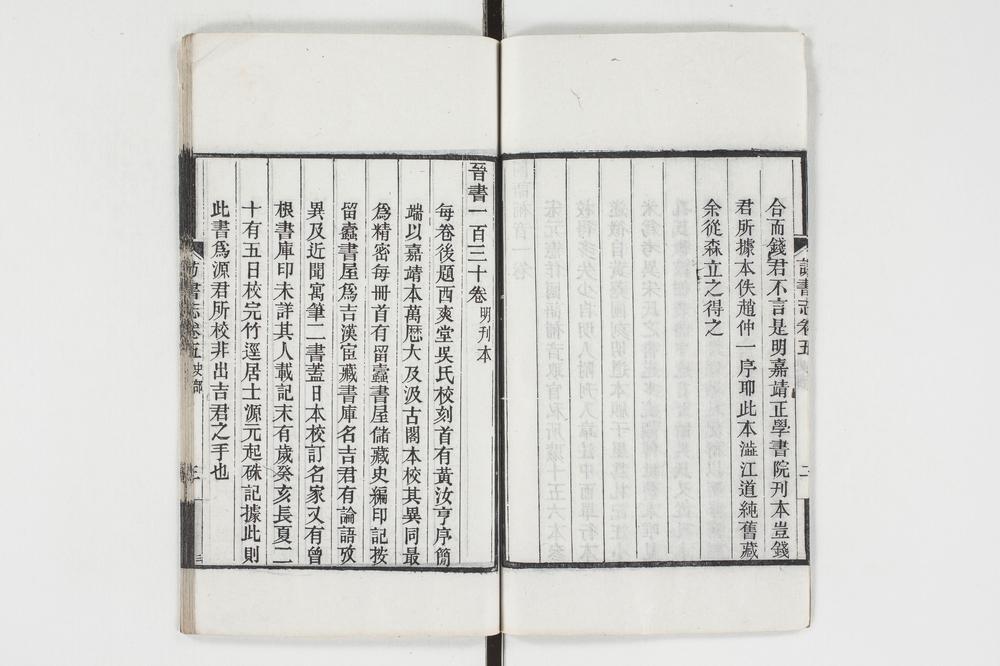 訪書志卷五
二
合而錢君不言是明嘉靖正學書院刊本豈錢
君所據本佚趙仲一序耶此本澁江道純舊藏
余從森立之得之
晉書一百三十卷明刊本
每卷後題西爽堂吳氏校刻首有黃汝亨序簡
端以嘉靖本萬厯大及汲古閣本校其異同最
爲精密每冊首有留蠹書屋儲藏史編印記按
留蠹書屋爲吉漢宦藏書庫名吉君有論語攷
異及近聞寓筆二書蓋日本校訂名家又有曾
根書庫印未詳其人載記末有歲癸亥長夏二
十有五日校完竹逕居士源元起硃記據此則
此書爲源君所校非出吉君之手也
訪書志卷五 史部
三